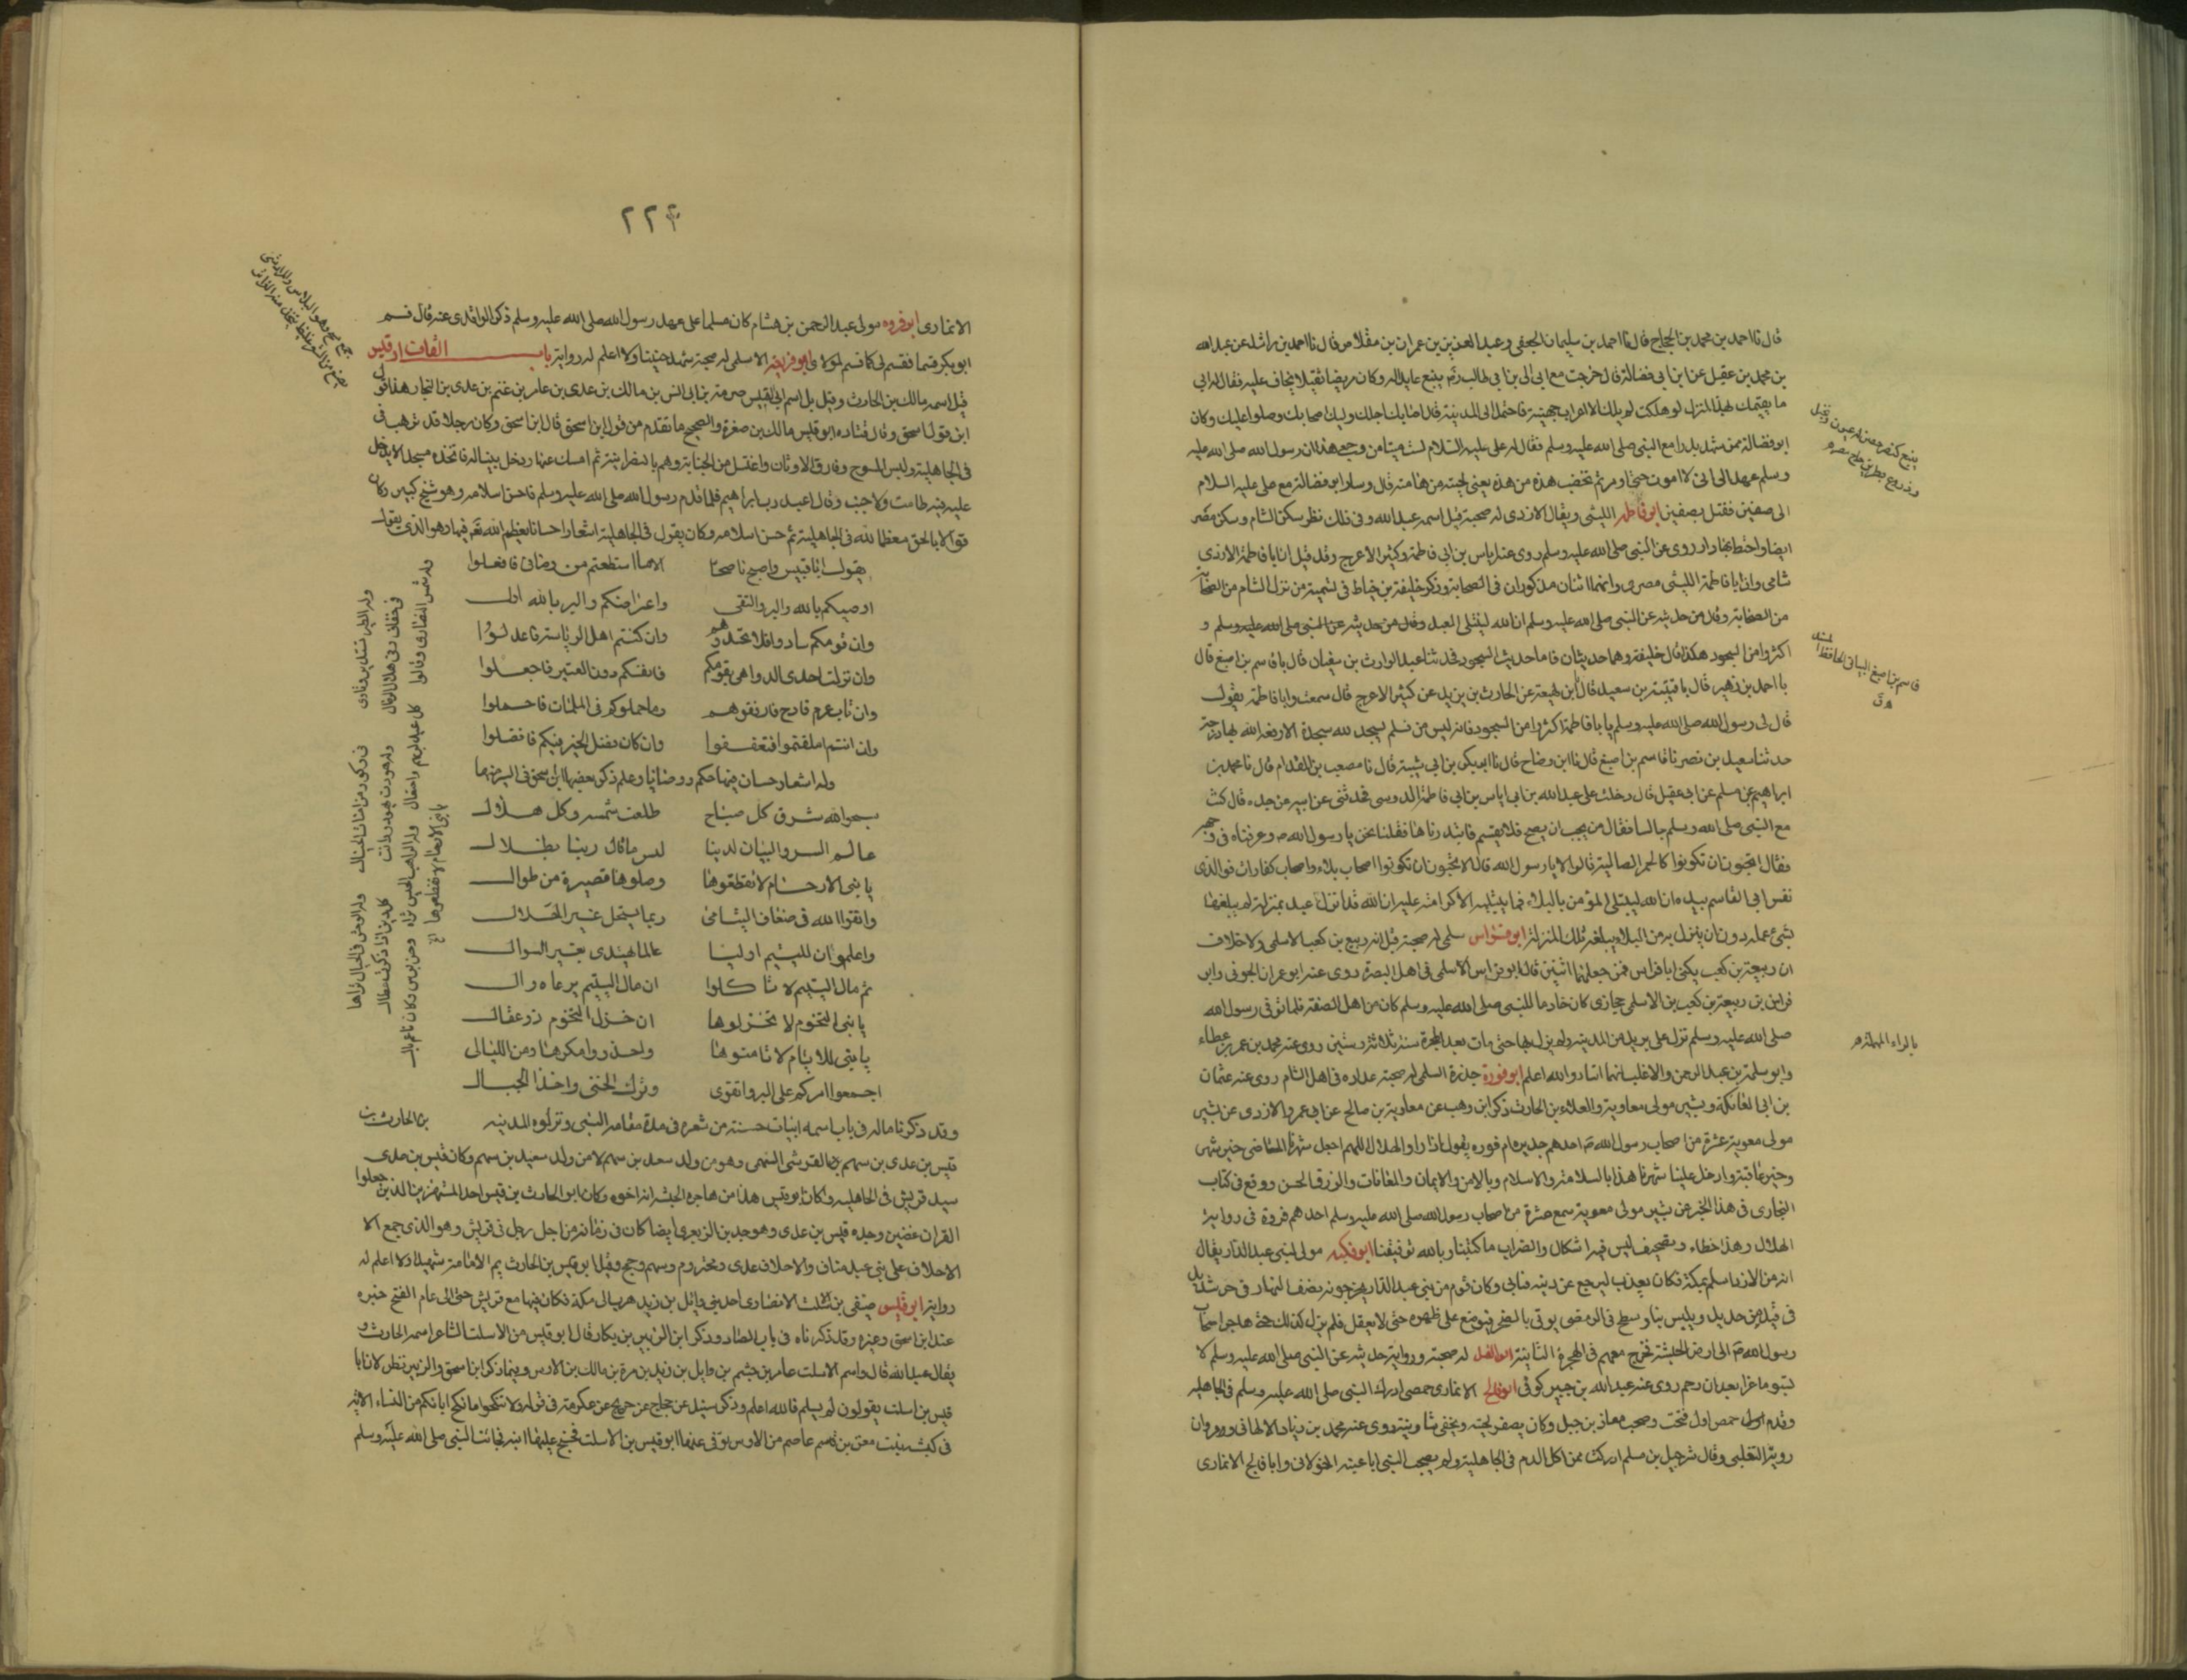 قال نا احمد بن محمد بن الحجاج قال نا احمد بن سليمان الجعفى وعبد العزيز بن عمران بن مقلاص قال نا احمد بن راشد عن عبد الله
بن محمد بن عقيل عن ابن ابى فضالة قال خرجت مع ابى الى بن ابى طالب بينبع عايدا له وكان مريضا ثقيلا يخاف عليه فقال له ابى
ما يقيمك بهذا المنزل لو هلكت لم يلك الا اعراب جهينة فاحتمل الى المدينة فان اصابك اجلك وليك اصحابك وصلوا عليك وكان
ابو فضالة ممن شهد بدرا مع النبى صلى الله عليه وسلم فقال له على عليه السلام لست ميتا من وجعى هذا ان رسول الله صلى الله عليه
وسلم عهد الى انى لا اموت حتى اومر ثم تخضب هذه من هذه يعنى لحيته من هامته قال وسار ابو فضالة مع على عليه السلام
الى صفين فقتل بصفين ابو فاطمه الليثى ويقال الازدى له صحبة قيل اسمه عبد الله وفى ذلك نظر سكن الشام وسكن مصر
ايضا واختط بها دارا روى عن النبى صلى الله عليه وسلم روى عنه اياس بن ابى فاطمة وكثير الاعرج وقد قيل ان ابا فاطمة الازدى
شامى وان ابا فاطمة الليثى مصرى وانهما اثنان مذكوران فى الصحابة وذكر خليفة بن خياط فى تسمية من نزل الشام من الصحابة
من الصحابة وقال من حديثه عن النبى صلى الله عليه وسلم ان الله ليبتلى العبد وقال من حديثه عن النبى صلى الله عليه وسلم و
اكثروا من السجود هكذا قال خليفة وهما حديثان فاما حديث السجود فحدثنا عبد الوارث بن سفيان قال نا قاسم بن اصبغ قال
نا احمد بن زهير قال نا قتيبة بن سعيد قال نا بن لهيعة عن الحارث بن يزيد عن كثير الاعرج قال سمعت ابا فاطمة يقول
قال لى رسول الله صلى الله عليه وسلم يا ابا فاطمة اكثر من السجود فانه ليس من مسلم يسجد لله سجدة الا رفعه الله بها درجة
حدثنا سعيد بن نصر نا قاسم بن اصبغ قال نا ابن وضاح قال نا ابو بكر بن ابى شيبة قال نا مصعب بن المقدام قال نا محمد بن
ابراهيم عن مسلم عن ابى عقيل قال دخلت على عبد الله بن ابى اياس بن ابى فاطمة الدوسى فحدثنى عن ابيه عن جده قال كنت
مع النبى صلى الله وسلم جالسا فقال من يحب ان يصح فلا يسقم فابتدرناها فقلنا نحن يا رسول الله وعرفناه فى وجهه
فقال اتحبون ان تكونوا كالحمر الصالية قالوا لا يا رسول الله قال الا تحبون ان تكونوا اصحاب بلاء واصحاب كفارات فوالذى
نفس ابى القاسم بيده ان الله ليبتلى المؤمن بالبلاء فما يبتليه الا لكرامته عليه ان الله قد انزل عبده بمنزلة لم يبلغها
بشئ عمله دون ان ينزل به من البلاء فيبلغه تلك المنزلة ابو فراس سلمى له صحبة قيل انه ربيع بن كعب الاسلمى ولا خلاف
ان ربيعة بن كعب يكنى ابا فراس فمن جعلهما اثنين قال ابو فراس الاسلمى فى اهل البصرة روى عنه ابو عمران الجونى وابو
فراس بن ربيعة بن كعب بن الاسلمى حجازى كان خادما للنبى صلى الله عليه وسلم كان من اهل الصفة فلما توفى رسول الله
صلى الله عليه وسلم نزل على بريد من المدينة ولم يزل بها حتى مات بعد الحرة سنة ثلاثة وستين روى عنه محمد بن عمر بن عطاء
وابو سلمة بن عبد الرحمن والاغلب انهما اثنان والله اعلم ابو فوزة حدير السلمى له صحبة عداده فى اهل الشام روى عنه عثمان
بن ابى العاتكة وبشير مولى معاوية والعلاء بن الحارث ذكر ابن وهب عن معاوية بن صالح عن ابى عمرو الازدى عن بشير
مولى معوية عشرة من اصحاب رسول الله احدهم حدير ابو فوزه يقول اذا راوا الهلال اللهم اجعل شهرنا الماضى خير شهر
وخير عاقبة وادخل علينا شهرنا هذا بالسلامة والاسلام وبالامن والايمان والمعافات والرزق الحسن ووقع فى كتاب
البخارى فى هذا الخبر عن بشير مولى معوية سمع عشرة من اصحاب رسول الله صلى الله عليه وسلم احدهم فروة فى رواية
الهلال وهذا خطاء وتصحيف ليس فيه اشكال والصواب ما كتبنا وبالله توفيقنا ابو فكيه مولى لبنى عبد الدار يقال
انه من الازد اسلم بمكة فكان يعذب ليرجع عن دينه فيابى وكان قوم من بنى عبد الدار يخرجونه نصف النهار فى حر شديد
فى قيد من حديد ويلبس ثيابا ويبطح فى الرمضى يوتى بالصخر فيوضع على ظهره حتى لا يعقل فلم يزل كذلك حتى هاجر اصحاب
رسول الله الى ارض الحبشة فخرج معهم فى الهجرة الثانية ابو الفيل له صحبة ورواية حديثه عن النبى صلى الله عليه وسلم لا
تسبوا ماعزا بعد ان رجم روى عنه عبد الله بن جبير كوفى ابو فالج الانمارى حمصى ادرك النبى صلى الله عليه وسلم فى الجاهلية
وقدم حمص اول فتحت وصحب معاذ بن جبل وكان يصفر لحيته ويحفى شاربه روى عنه محمد بن زياد الالهانى ومروان
روبة التغلبى وقال شرحبيل بن مسلم ادركت ممن اكل الدم فى الجاهلية ولم يصحب النبى ابا عنبه الخولانى وابا فالج الانمارى
قاسم بن اصبغ البيانى الحافظ
بالراء المهملة
٢٢٤
الانمارى ابو فروه مولى عبد الرحمن بن هشام كان مسلما على عهد رسول الله صلى الله عليه وسلم ذكر الواقدى عنه قال قسم
ابو بكر قسما فقسم لى كما قسم لمولاى ابو فريعه الاسلمى له صحبة شهد حنينا ولا اعلم له رواية باب القاف ابو قيس
قيل اسمه مالك بن الحارث وقيل بل اسم ابى القيس صرمة بن ابى انس بن مالك بن عدى بن عامر بن غنم بن عدى بن النجار هذا قول
ابن قول اسحق وقال قتاده ابو قيس مالك بن صغرة والصحيح ما تقدم من قول ابن اسحق قال ابن اسحق وكان رجلا قد ترهب فى
فى الجاهلية ولبس المسوح وفارق الاوثان واغتسل من الجنابة وهم بالنصرانية ثم امسك عنها ودخل بيتا له فاتخذه مسجدا لا يدخل
عليه فيه طامث ولا جنب وقال اعبد رب ابراهيم فلما قدم رسول الله صلى الله عليه وسلم فاحسن اسلامه وهو شيخ كبير وكان
قوالا بالحق معظما لله فى الجاهلية ثم حسن اسلامه وكان يقول فى الجاهلية اشعارا حسانا يعظم الله فيها وهو الذى يقول
يقول ابا قيس واصبح ناصحا الا ما استطعتم من وصاتى فافعلوا
اوصيكم بالله والبر والتقى واعراضكم والبر بالله اول
وان قومكم سادوا فلا تحسدوهم وان كنتم اهل الرياسة فاعدلوا
وان نزلت احدى الدواهى بقومكم فانفسكم دون العشير فاجعلوا
وان ناب غرم فادح فارفقوهم وما حملوكم فى الملمات فاحملوا
وان انتم املقتموا فتعففوا وان كان فضل الخير فيكم فافضلوا
وله اشعار حسان فيها حكم ووصايا وعلم ذكر بعضها ابن اسحق فى السير منها
سبحوا لله شرق كل صباح طلعت شمسه وكل هلال
عالم السر والبيان لدينا ليس ما قال ربنا بضلال
يا بنى الارحام لا تقطعوها وصلوها قصيرة من طوال
واتقوا الله فى ضعاف اليتامى ربما يستحل غير الحلال
واعلموا ان لليتيم اوليا عالما يهتدى بغير السوال
ثم مال اليتيم لا تاكلوا ان مال اليتيم يرعاه وال
يا بنى التخوم لا تخزلوها ان خزل التخوم ذو عقال
يا بنى للايام لا تامنوها واحذروا مكرها ومن الليالى
اجمعوا امركم على البر والتقوى وترك الخنى واخذ الحلال
وقد ذكرنا ماله فى باب اسمه ابيات حسنة من شعره فى مدة مقامه النبى وتركوه المدينه بن الحارث بن
قيس بن عدى بن سهم القرشى السهمى وهو من ولد سعد بن سهم لا من ولد سعيد بن سهم وكان قيس بن عدى
سيد قريش فى الجاهلية وكان ابو قيس هذا من هاجره الحبشة اخوه وكان ابو الحارث بن قيس احد المستهزئين الذين جعلوا
القران عضين وجده قيس بن عدى وهو جد بن الزبعرى ايضا كان فى زمانه من اجل رجل فى قريش وهو الذى جمع الا
الاحلاف على بنى عبد مناف والاحلاف عدى ومخزوم وسهم وجمح وقيل ابو قيس بن الحارث يوم اليمامة شهيدا ولا اعلم له
رواية ابو قيس صيفى بن الاسلت الانصارى احد بنى وائل بن زيد هرب الى مكة فكان فيها مع قريش حتى الى عام الفتح خبره
عند ابن اسحق وغيره وقد ذكرناه فى باب الصاد وذكر ابن الزبير بن بكار قال ابو قيس من الاسلت الشاعر اسمه الحارث و
يقال عبد الله قال واسم الاسلت عامر بن جشم بن وايل بن زيد بن مرة بن مالك بن الاوس وفيما ذكر ابن اسحق والزبير نظر لان ابا
قيس بن اسلت يقولون لم يسلم فالله اعلم وذكر سنيد عن حجاج عن جريج عن عكرمة فى قوله ولا تنكحوا ما نكح اباءكم من النساء الاية
فى كبيشة بنت معن بن عاصم من الاوس توفى عنها ابو قيس بن الاسلت فجنح عليها ابنه فجائت النبى صلى الله عليه وسلم
وله شمس النصارى وقالوا كل عيد لهم واحتفال وله الراهب الحبيس تراه رهن بوس وكان ناعم بال
يا بنى الارحام لا تقطعوها الخ